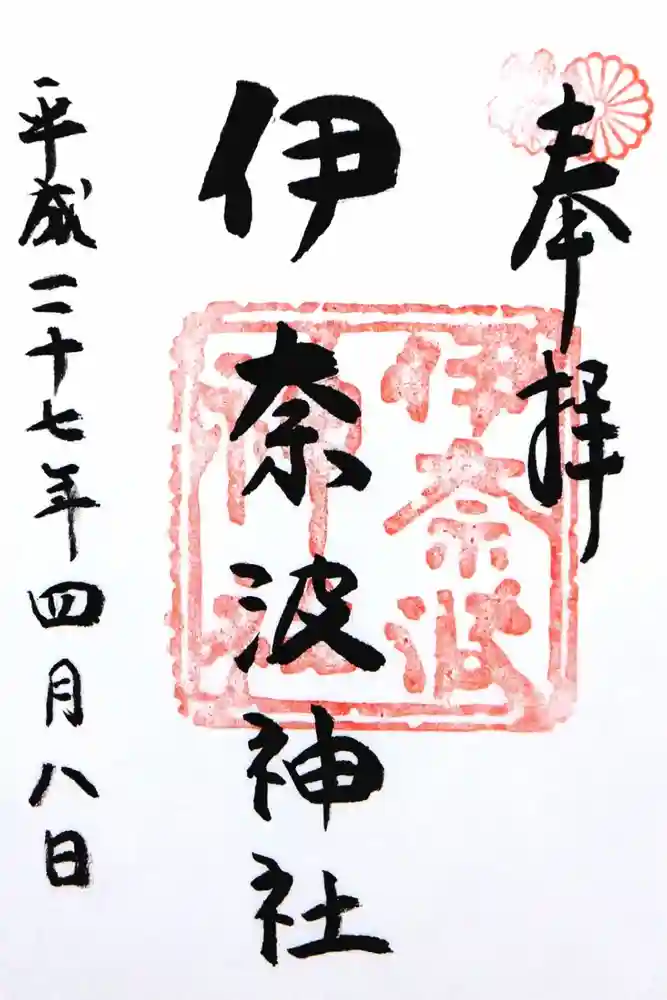 奉拝
伊奈波神社
伊奈波
神社
平成二十七年四月八日